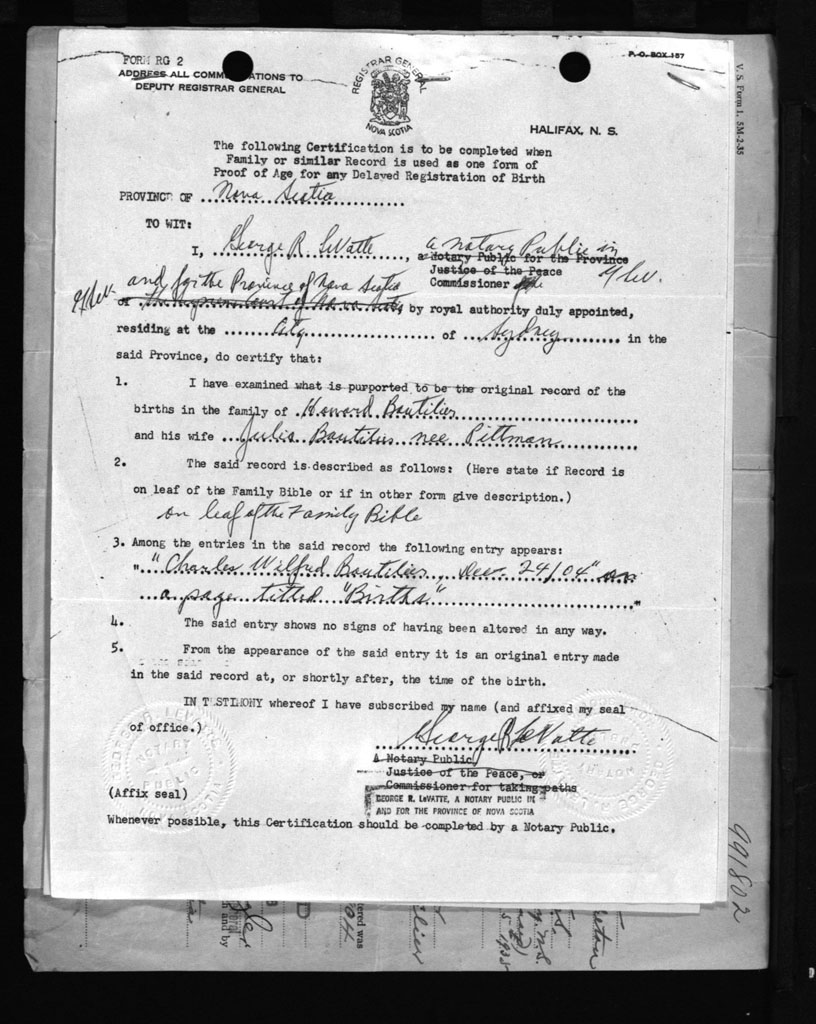 FORM RG 2
P. O. BOX 157
ADDRESS ALL COMMUNICATIONS TO
DEPUTY REGISTRAR GENERAL
REGISTRAR GENERAL
NOVA SCOTIA
V. S. Form 1. 5M-2-35
HALIFAX, N. S.
The following Certification is to be completed when
Family or similar Record is used as one form of
Proof of Age for any Delayed Registration of Birth
PROVINCE OF Nova Scotia
TO WIT:
I, George R. LeVatte, a Notary Public in
a Notary Public for the Province
Justice of the Peace
Commissioner
and for the Province of Nova Scotia
of by royal authority duly appointed,
residing at the City of Sydney in the
said Province, do certify that:
1. I have examined what is purported to be the original record of the
births in the family of Howard Boutilier
and his wife Julia Boutilier nee Pittman
2. The said record is described as follows: (Here state if Record is
on leaf of the Family Bible or if in other form give description.)
on leaf of the Family Bible
3. Among the entries in the said record the following entry appears:
" "Charles Wilfred Boutilier, Dec. 24/04" on
a page titled "Births" "
4. The said entry shows no signs of having been altered in any way.
5. From the appearance of the said entry it is an original entry made
in the said record at, or shortly after, the time of the birth.
IN TESTIMONY whereof I have subscribed my name (and affixed my seal
of office.)
George R. LeVatte
A Notary Public,
Justice of the Peace, or
Commissioner for taking oaths
(Affix seal)
GEORGE R. LeVATTE, A NOTARY PUBLIC IN
AND FOR THE PROVINCE OF NOVA SCOTIA
Whenever possible, this Certification should be completed by a Notary Public.
NOTARY
PUBLIC
991802